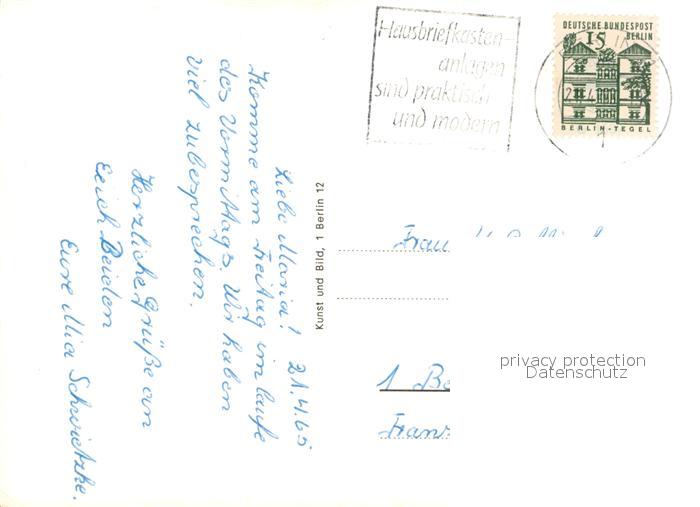 Liebe Maria! 21.4.65
Komme am Freitag im laufe
des Vormittags. Wir haben
viel zubesprechen.
Herzliche Grüße an
Euch Beiden
Eure Mia Schwietzke.
Kunst und Bild, 1 Berlin 12
Hausbriefkasten-
anlagen
sind praktisch
und modern
DEUTSCHE BUNDESPOST
15 BERLIN
BERLIN-TEGEL
Frau
1 Be
Franz
privacy protection
Datenschutz